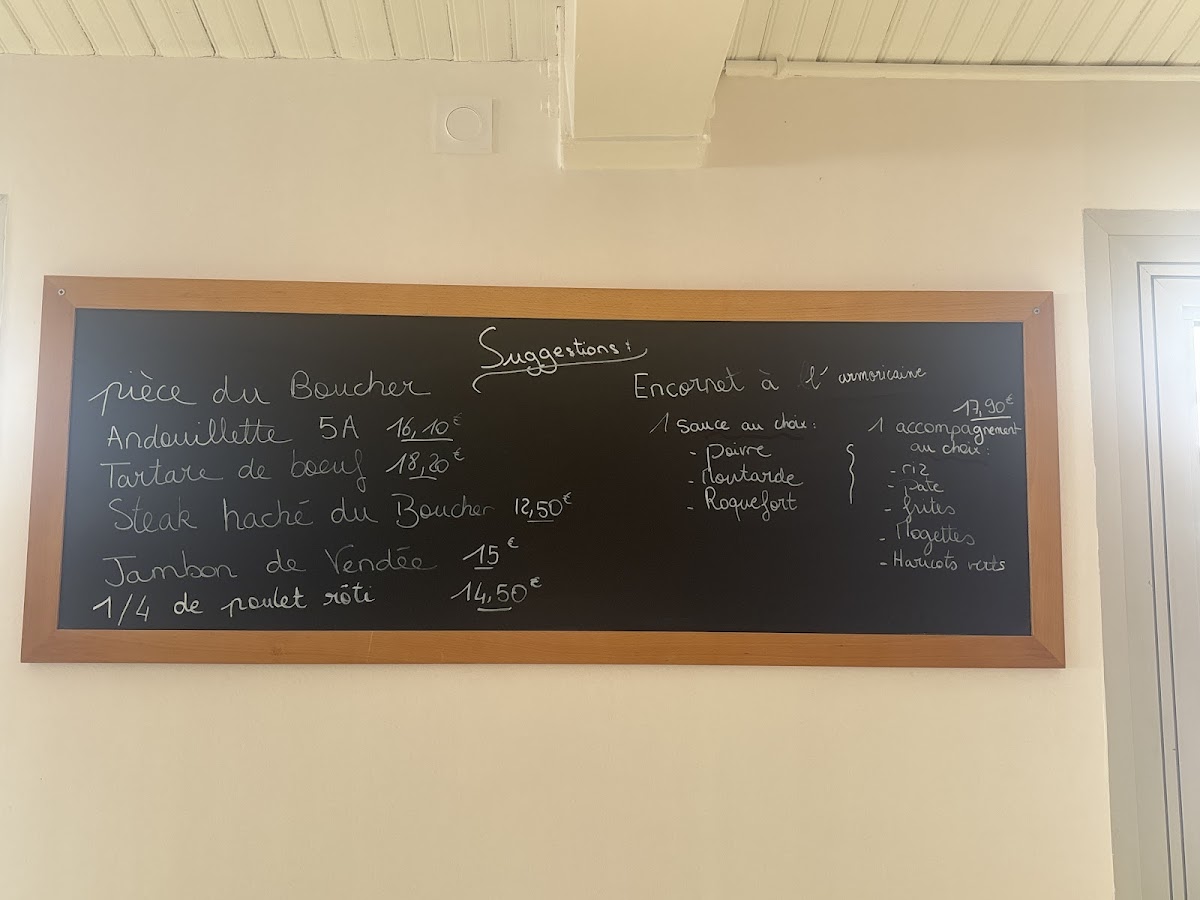 Suggestions :
pièce du Boucher
Andouillette 5A 16,10€
Tartare de boeuf 18,20€
Steak haché du Boucher 12,50€
Jambon de Vendée 15€
1/4 de poulet rôti 14,50€
Encornet à l'armoricaine
17,90€
1 sauce au choix :
- poivre
- Moutarde
- Roquefort
1 accompagnement
au choix :
- riz
- pate
- frites
- Mogettes
- Haricots verts